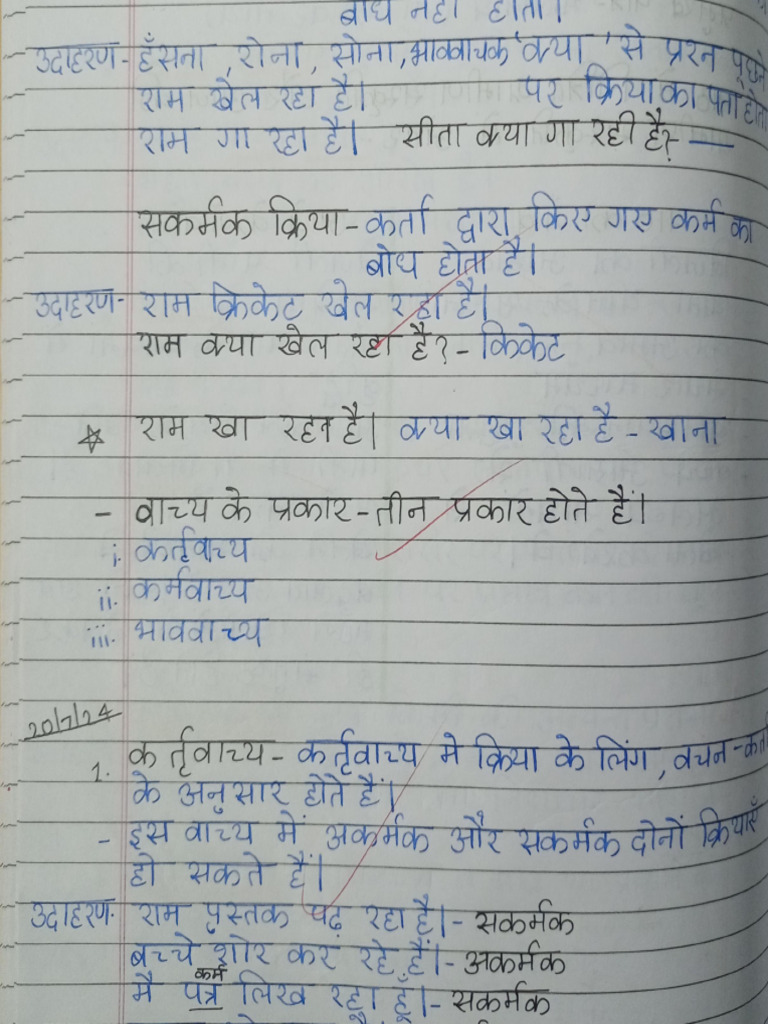 बोध नहीं होता।
उदाहरण- हँसना, रोना, सोना, भाववाचक 'क्या' से प्रश्न पूछने
राम खेल रहा है। पर क्रिया का पता होता
राम गा रहा है। सीता क्या गा रही है? —
सकर्मक क्रिया - कर्ता द्वारा किए गए कर्म का
बोध होता है।
उदाहरण- राम क्रिकेट खेल रहा है।
राम क्या खेल रहा है? - क्रिकेट
☆ राम खा रहा है। क्या खा रहा है - खाना
- वाच्य के प्रकार - तीन प्रकार होते हैं।
i. कर्तृवाच्य
ii. कर्मवाच्य
iii. भाववाच्य
20/7/24
1. कर्तृवाच्य - कर्तृवाच्य मे क्रिया के लिंग, वचन - कर्ता
के अनुसार होते हैं।
- इस वाच्य में अकर्मक और सकर्मक दोनों क्रियाएँ
हो सकते हैं।
उदाहरण- राम पुस्तक पढ़ रहा है। - सकर्मक
बच्चे शोर कर रहे हैं। - अकर्मक
कर्म
मै पत्र लिख रहा हूँ। - सकर्मक